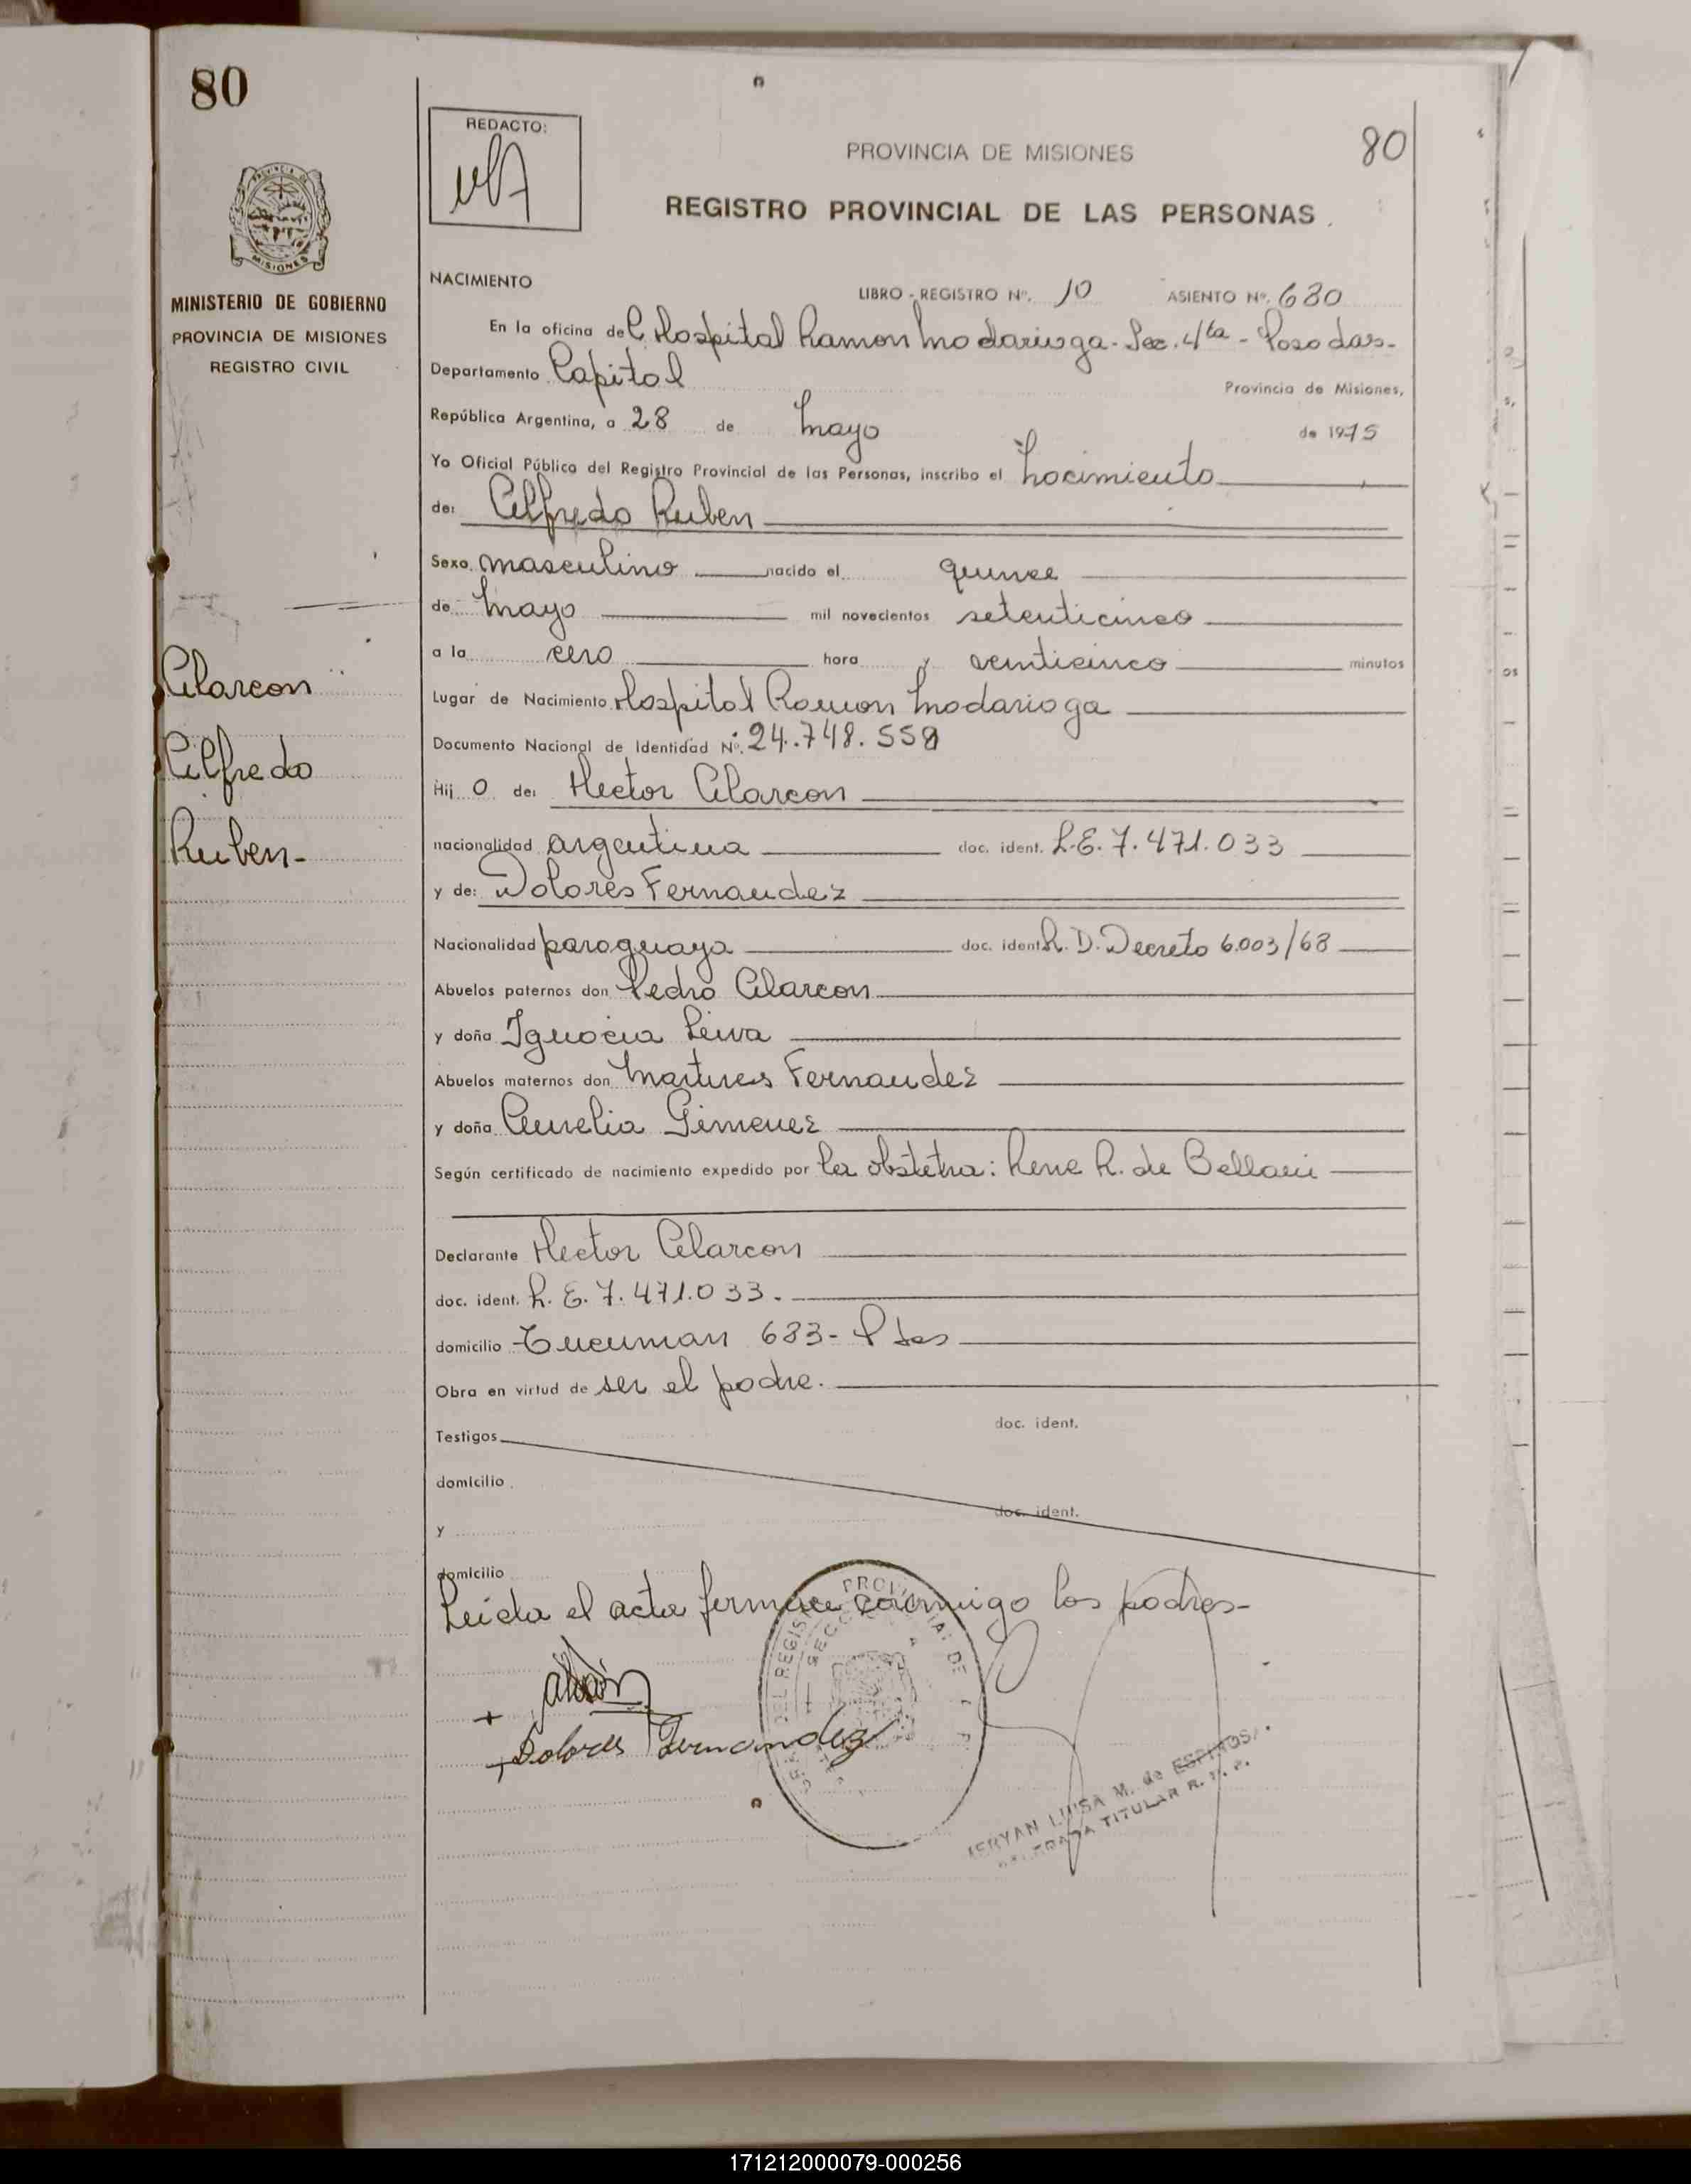 80
REDACTO:
PROVINCIA DE MISIONES
80
REGISTRO PROVINCIAL DE LAS PERSONAS
MISIONES
MINISTERIO DE GOBIERNO
PROVINCIA DE MISIONES
REGISTRO CIVIL
NACIMIENTO
LIBRO - REGISTRO Nº. 10 ASIENTO Nº. 680
En la oficina del Hospital Ramon Madariaga - Sec. 4ta - Posadas-
Departamento Capital Provincia de Misiones,
República Argentina, a 28 de Mayo de 1975
Yo Oficial Público del Registro Provincial de las Personas, inscribo el Nacimiento
de: Alfredo Ruben
Sexo masculino nacido el quince
de Mayo mil novecientos setenticinco
a la cero hora y veinticinco minutos
Alarcon
Alfredo
Ruben-
Lugar de Nacimiento Hospital Ramon Madariaga
Documento Nacional de Identidad Nº. 24.748.559
Hij o de: Hector Alarcon
nacionalidad argentina doc. ident. L.E. 7.471.033
y de: Dolores Fernandez
Nacionalidad paraguaya doc. ident. R. D. Decreto 6.003/68
Abuelos paternos don Pedro Alarcon
y doña Ignacia Leiva
Abuelos maternos don Martires Fernandez
y doña Aurelia Gimenez
Según certificado de nacimiento expedido por la obstetra: Rene R. de Bellani
Declarante Hector Alarcon
doc. ident. L. E. 7.471.033.
domicilio Tucuman 683 - Pdas
Obra en virtud de ser el padre.
Testigos doc. ident.
domicilio
y doc. ident.
domicilio
Leida el acta firman conmigo los padres-
Dolores Fernandez
LUISA M. de ESPINOSA
TITULAR R. P. P.
171212000079-000256